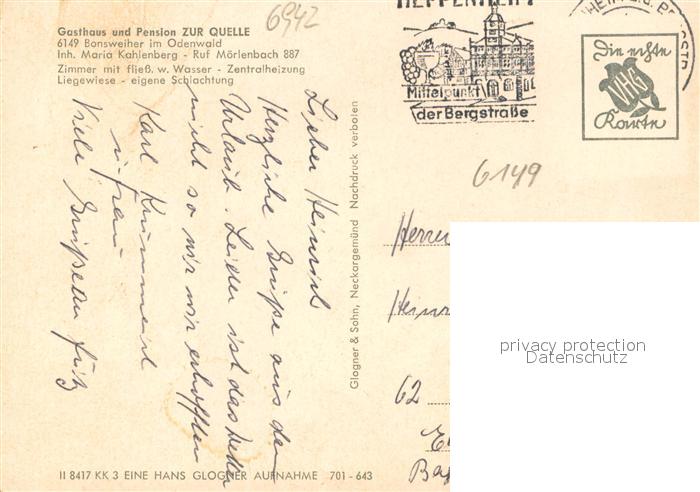 Gasthaus und Pension ZUR QUELLE
6149 Bonsweiher im Odenwald
Inh. Maria Kahlenberg - Ruf Mörlenbach 887
Zimmer mit fließ. w. Wasser - Zentralheizung
Liegewiese - eigene Schlachtung
6942
HEPPENHEIM
Mittelpunkt
der Bergstraße
Die echte
VHG
Karte
6149
Lieber Heinrich
Herzliche Grüße aus dem
Urlaub. Leider ist das Wetter
nicht so wir wir erhofften
Karl
u. Frau
Viele Grüße an Fritz
Glogner & Sohn, Neckargemünd Nachdruck verboten
Herrn
Heinr
62
privacy protection
Datenschutz
II 8417 KK 3 EINE HANS GLOGNER AUFNAHME 701-643